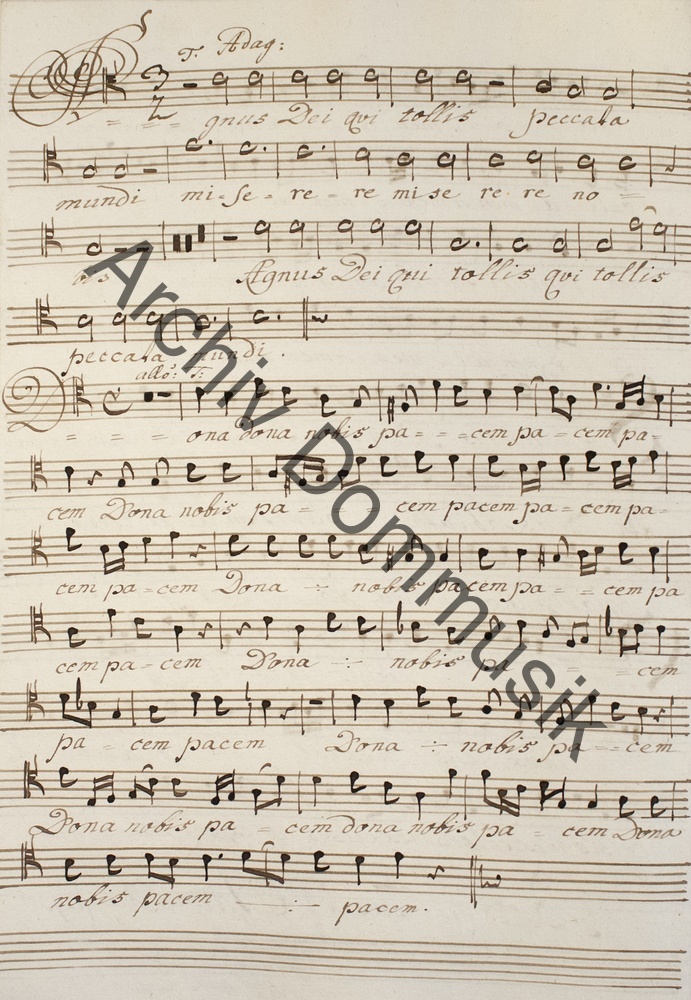 T. Adag:
A = = = gnus Dei qvi tollis peccata
mundi mi = se = re = re mi se re re no =
bis Agnus Dei qui tollis qvi tollis
peccata mundi.
allo: T:
D = = = ona dona nobis pa = = cem pa = cem pa =
cem Dona nobis pa = = = cem pacem pa = cem pa =
cem pa = cem Dona ÷ nobis pacem pa = = cem pa
cem pa = cem Dona ÷ nobis pa = = cem
pa = cem pacem Dona ÷ nobis pa = = cem
Dona nobis pa = cem dona nobis pa = cem Dona
nobis pacem ÷ pacem.
Archiv Dommusik